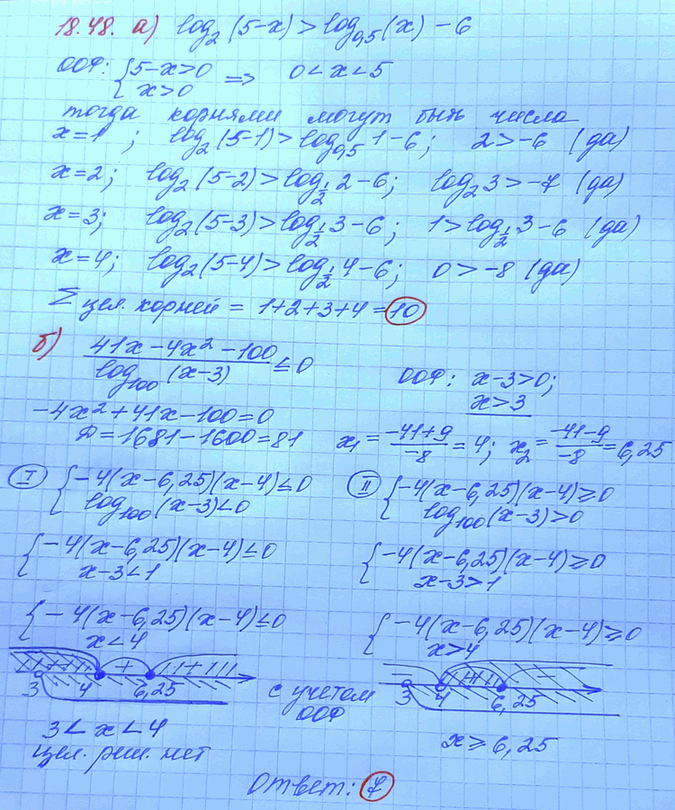 18.48. а) log₂(5-x) > log₀,₅(x) - 6
ООФ: {5-x>0 x>0 => 0<x<5
тогда корнями могут быть числа
x=1; log₂(5-1) > log₀,₅1-6; 2>-6 (да)
x=2; log₂(5-2) > log_{1/2}2-6; log₂3>-7 (да)
x=3; log₂(5-3) > log_{1/2}3-6; 1>log_{1/2}3-6 (да)
x=4; log₂(5-4) > log_{1/2}4-6; 0>-8 (да)
Σ цел. корней = 1+2+3+4 = 10
б) (41x-4x²-100)/(log₁₀₀(x-3)) ≤ 0
ООФ: x-3>0;
x>3
-4x²+41x-100=0
D=1681-1600=81
x₁ = (-41+9)/(-8) = 4; x₂ = (-41-9)/(-8) = 6,25
I {-4(x-6,25)(x-4)≤0
log₁₀₀(x-3)<0
{-4(x-6,25)(x-4)≤0
x-3<1
{-4(x-6,25)(x-4)≤0
x<4
3 4 6,25
3<x<4
цел. реш. нет
с учетом
ООФ
II {-4(x-6,25)(x-4)≥0
log₁₀₀(x-3)>0
{-4(x-6,25)(x-4)≥0
x-3>1
{-4(x-6,25)(x-4)≥0
x>4
3 4 6,25
x≥6,25
Ответ: 7